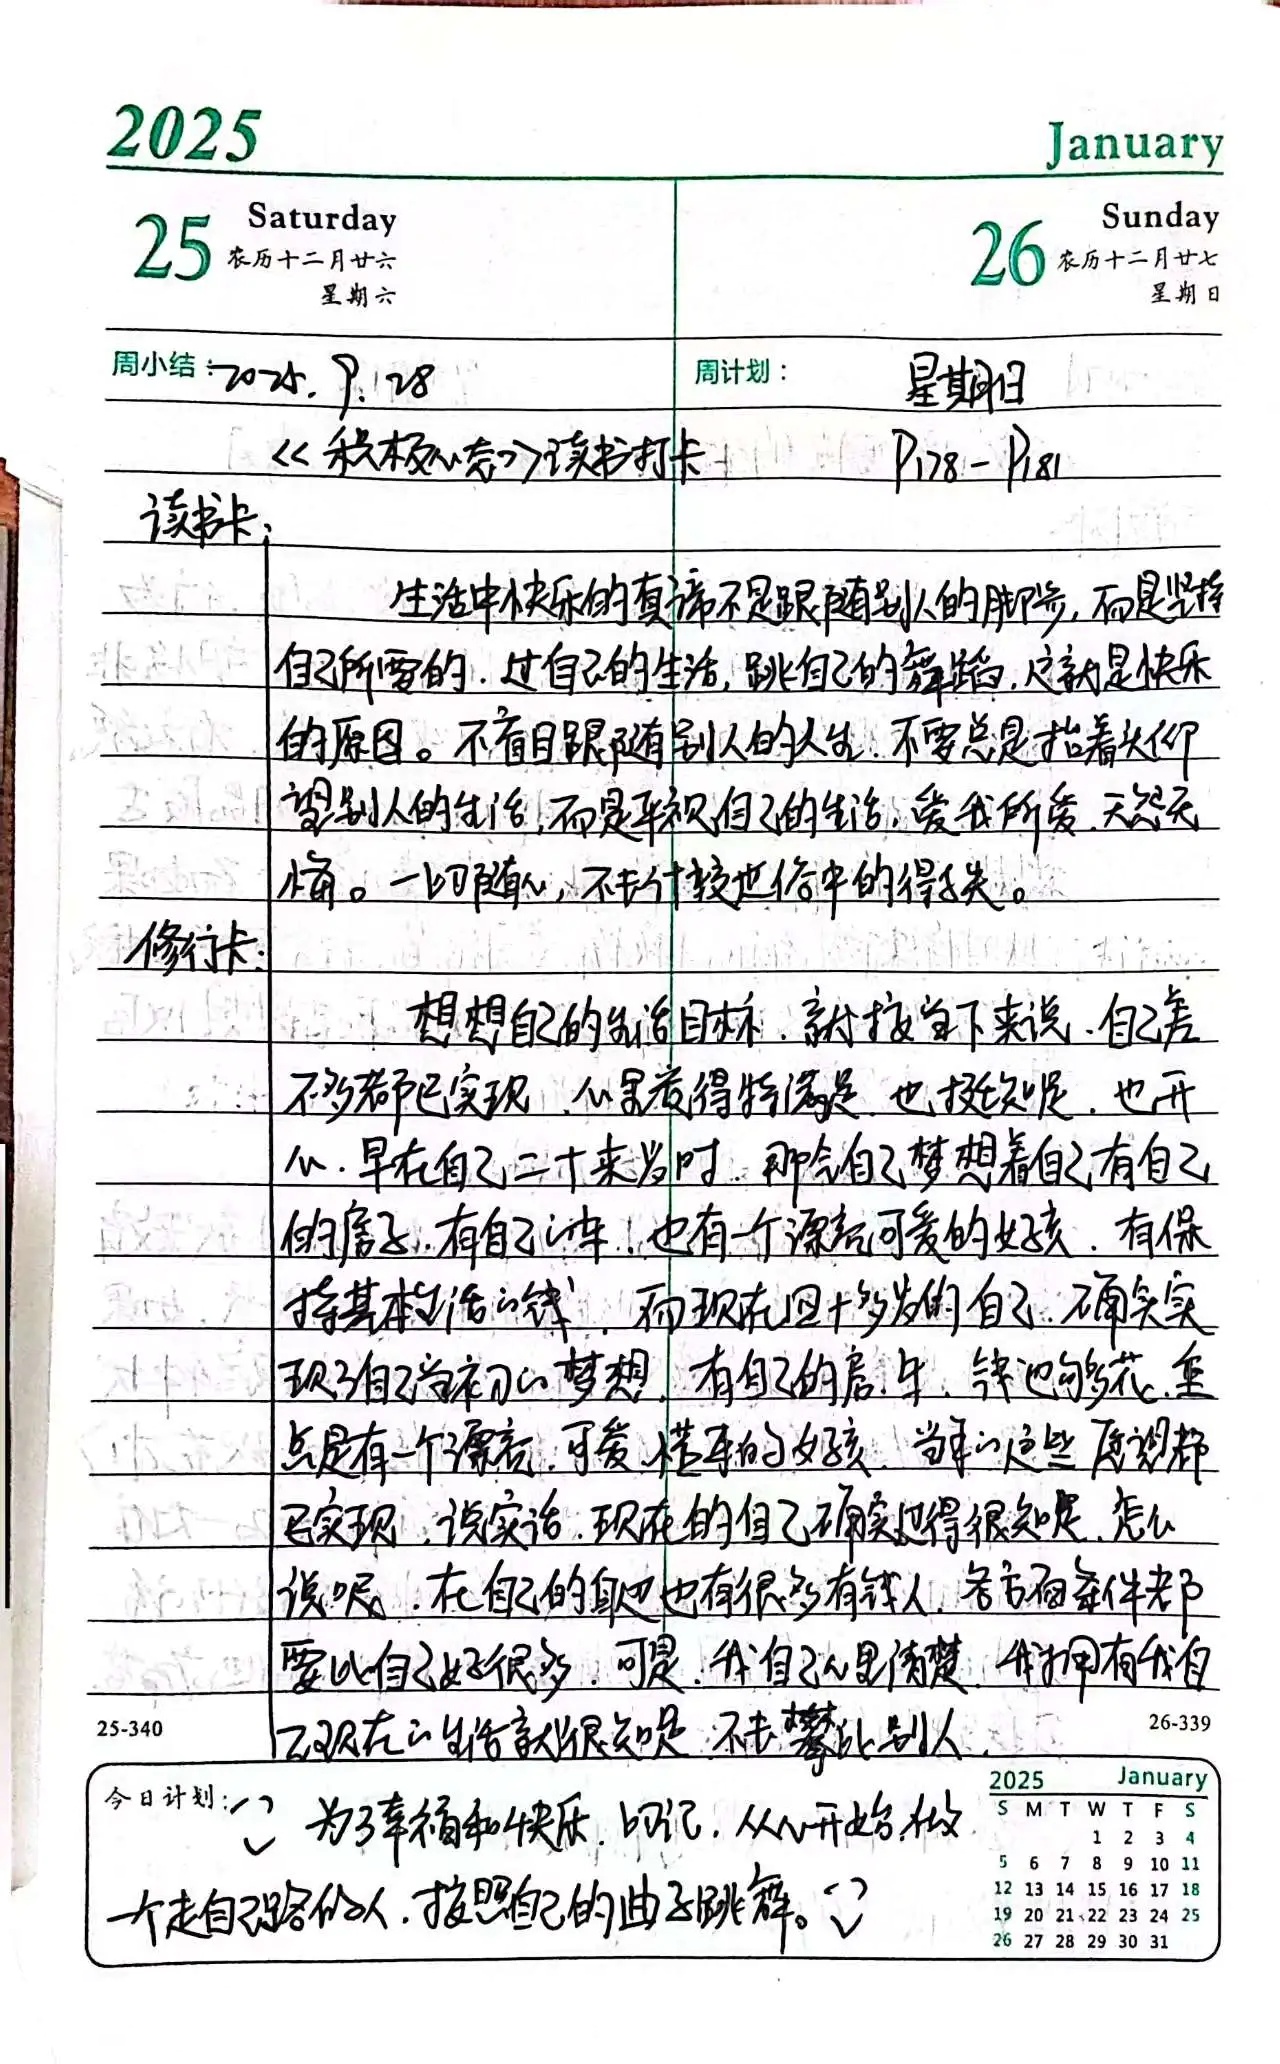 2025 January
25 Saturday
农历十二月廿六
星期六
26 Sunday
农历十二月廿七
星期日
周小结：2025.9.28 周计划： 星期日
《积极心态》读书打卡 P178-P181
读书卡：
生活中快乐的真谛不是跟随别人的脚步，而是坚持
自己所要的，过自己的生活，跳自己的舞蹈，这就是快乐
的原因。不盲目跟随别人的人生，不要总是抬着头仰
望别人的生活，而是平视自己的生活，爱我所爱，无怨无
悔。一切随心，不去计较世俗中的得失。
修行卡：
想想自己的生活目标，就按当下来说，自己差
不多都已实现，心里觉得特满足，也挺知足，也开
心，早在自己二十来岁时，那会自己梦想着自己有自己
的房子，有自己的车，也有一个漂亮可爱的女孩，有保
持基本生活的钱，而现在四十多岁的自己，确实实
现了自己当初的梦想，有自己的房、车，钱也够花，重
点是有一个漂亮、可爱、懂事的女孩，当年的这些愿望都
已实现，说实话，现在的自己确实过得很知足，怎么
说呢，在自己的身边也有很多有钱人，各方面条件都
要比自己好很多，可是，我自己心里清楚，我拥有我自
己现在的生活就很知足，不去攀比别人。
今日计划： 为了幸福和快乐，切记，从心开始，做
一个走自己路的人，按照自己的曲子跳舞。
25-340
26-339
2025 January
S M T W T F S
1 2 3 4
5 6 7 8 9 10 11
12 13 14 15 16 17 18
19 20 21 22 23 24 25
26 27 28 29 30 31